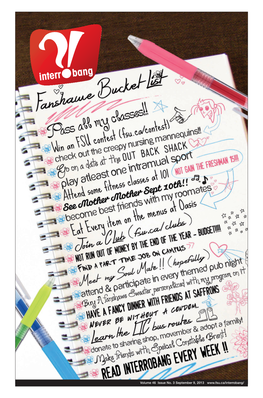 ?!
interr!bang
Fanshawe Bucket List
Pass all my classes!!
Win an FSU contest (fsu.ca/contest)
check out the creepy nursing mannequins!!
Go on a date at the OUT BACK SHACK
play atleast one intramural sport
NOT GAIN THE FRESHMAN 15!!!
Attend some fitness classes at 101
See Mother Mother Sept 10th!!
become best friends with my roomates
Eat Every item on the menus at Oasis
Join a Club (fsu.ca/clubs)
NOT RUN OUT OF MONEY BY THE END OF THE YEAR - BUDGET!!!!
FIND A PART TIME JOB ON CAMPUS
Meet my Soul Mate!! (hopefully)
attend & participate in every themed pub night
Buy A Fanshawe Sweater personalized with my program on it
HAVE A FANCY DINNER WITH FRIENDS AT SAFFRONS
NEVER BE WITHOUT A CONDOM
Learn the LTC bus routes
donate to sharing shop, movember & adopt a family!
Make Friends with Special Constable Brent!
READ INTERROBANG EVERY WEEK !!
Volume 45 Issue No. 3 September 9, 2013 www.fsu.ca/interrobang/